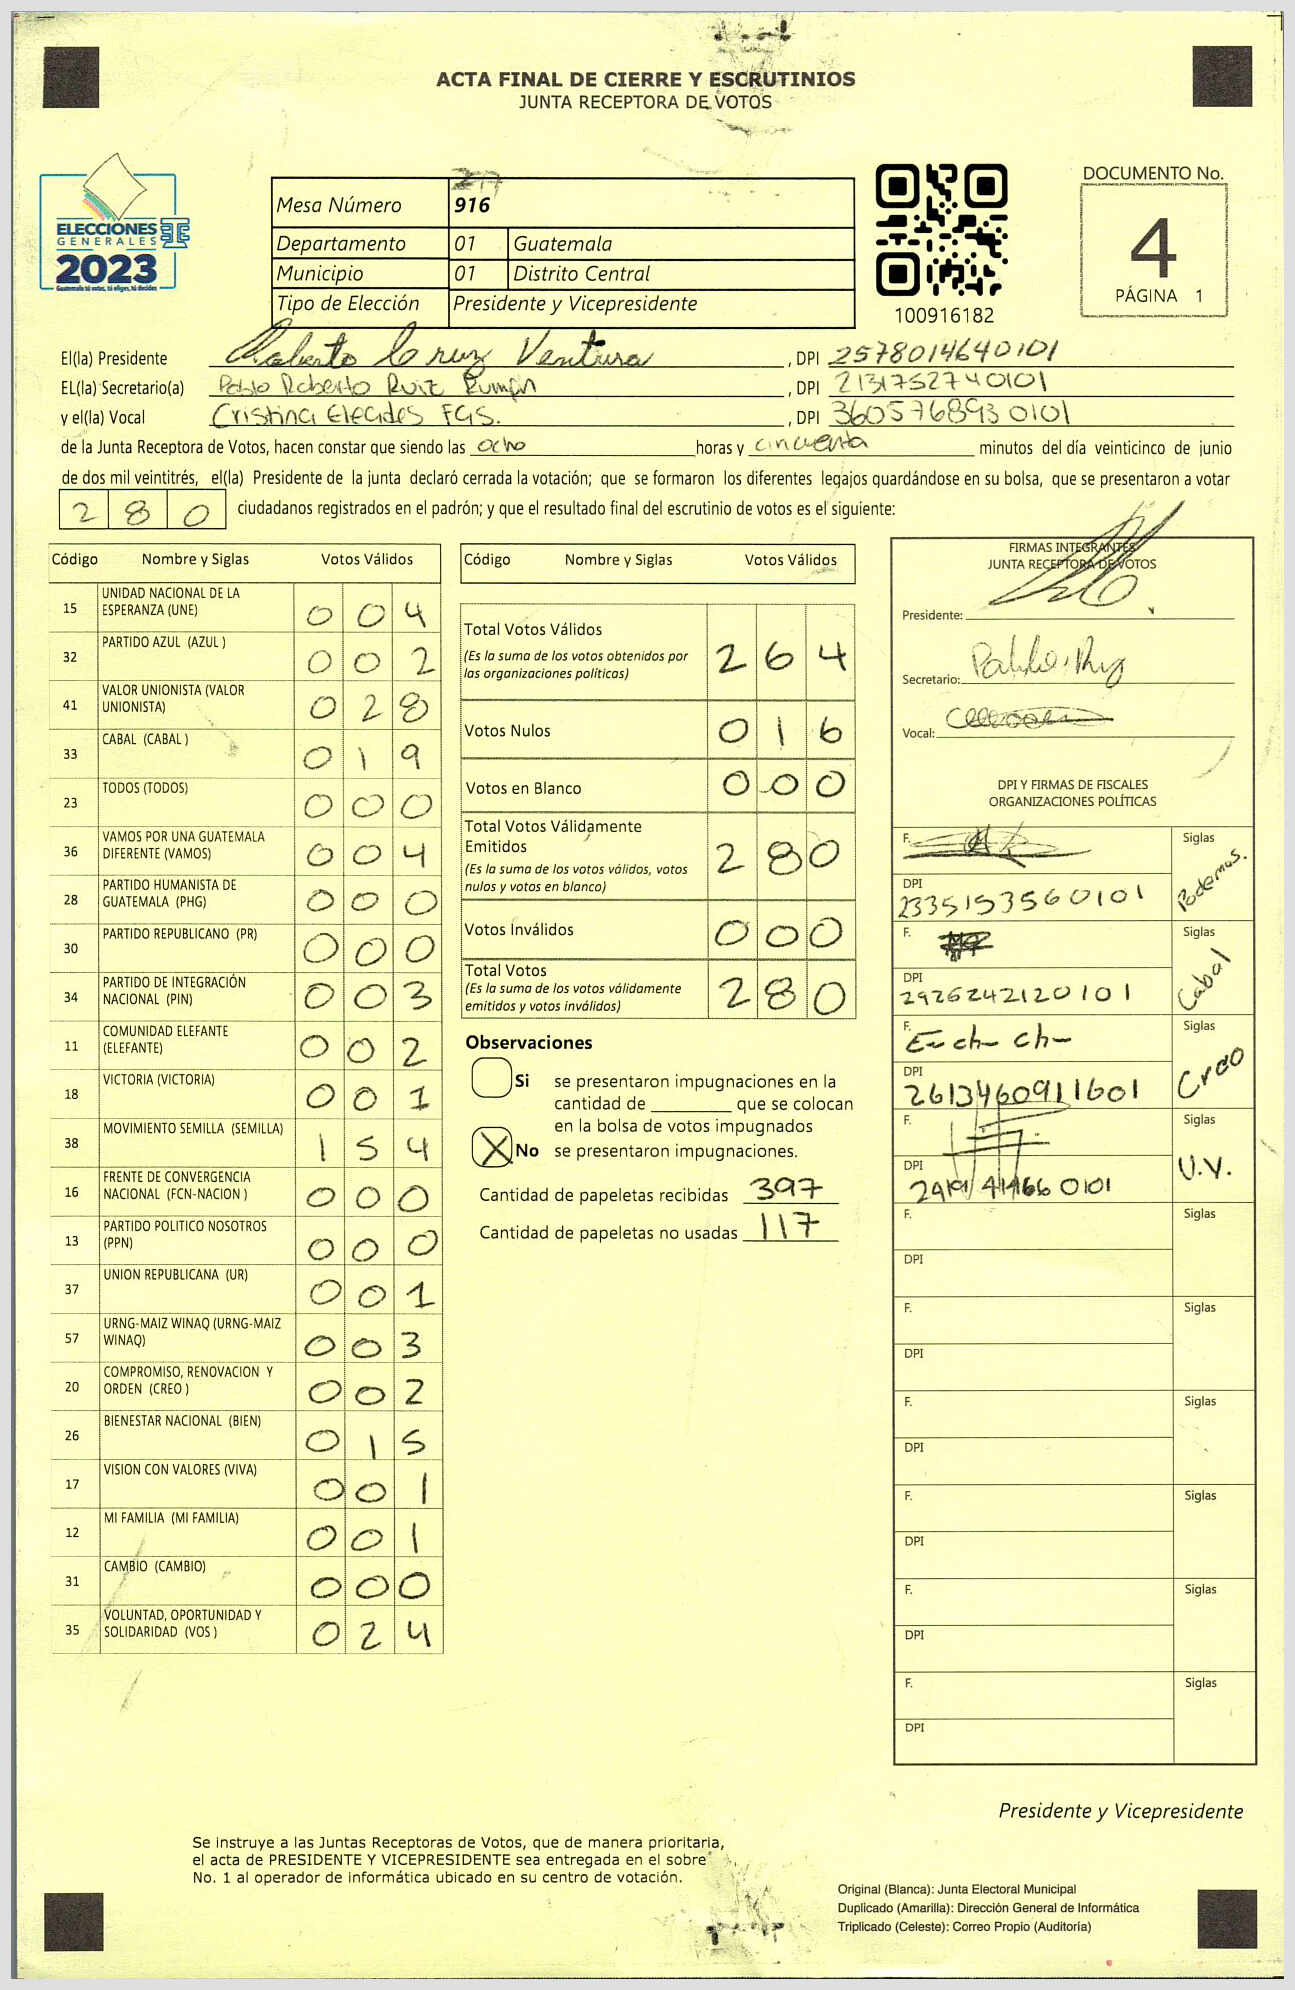 ACTA FINAL DE CIERRE Y ESCRUTINIOS
JUNTA RECEPTORA DE VOTOS
ELECCIONES
GENERALES
2023
Guatemala tú votas, tú eliges, tú decides
Mesa Número 916
Departamento 01 Guatemala
Municipio 01 Distrito Central
Tipo de Elección Presidente y Vicepresidente
100916182
DOCUMENTO No.
4
PÁGINA 1
El(la) Presidente Roberto Cruz Ventura, DPI 2578014640101
EL(la) Secretario(a) Pablo Roberto Ruiz, DPI 2131752740101
y el(la) Vocal Cristina, DPI 3605768930101
de la Junta Receptora de Votos, hacen constar que siendo las ocho horas y cincuenta minutos del día veinticinco de junio
de dos mil veintitrés, el(la) Presidente de la junta declaró cerrada la votación; que se formaron los diferentes legajos guardándose en su bolsa, que se presentaron a votar
280 ciudadanos registrados en el padrón; y que el resultado final del escrutinio de votos es el siguiente:
Código Nombre y Siglas Votos Válidos
15 UNIDAD NACIONAL DE LA ESPERANZA (UNE) 004
32 PARTIDO AZUL (AZUL ) 002
41 VALOR UNIONISTA (VALOR UNIONISTA) 028
33 CABAL (CABAL ) 019
23 TODOS (TODOS) 000
36 VAMOS POR UNA GUATEMALA DIFERENTE (VAMOS) 004
28 PARTIDO HUMANISTA DE GUATEMALA (PHG) 000
30 PARTIDO REPUBLICANO (PR) 000
34 PARTIDO DE INTEGRACIÓN NACIONAL (PIN) 003
11 COMUNIDAD ELEFANTE (ELEFANTE) 002
18 VICTORIA (VICTORIA) 001
38 MOVIMIENTO SEMILLA (SEMILLA) 154
16 FRENTE DE CONVERGENCIA NACIONAL (FCN-NACION ) 000
13 PARTIDO POLITICO NOSOTROS (PPN) 000
37 UNION REPUBLICANA (UR) 001
57 URNG-MAIZ WINAQ (URNG-MAIZ WINAQ) 003
20 COMPROMISO, RENOVACION Y ORDEN (CREO ) 002
26 BIENESTAR NACIONAL (BIEN) 015
17 VISION CON VALORES (VIVA) 001
12 MI FAMILIA (MI FAMILIA) 001
31 CAMBIO (CAMBIO) 000
35 VOLUNTAD, OPORTUNIDAD Y SOLIDARIDAD (VOS ) 024
Código Nombre y Siglas Votos Válidos
Total Votos Válidos 264
(Es la suma de los votos obtenidos por
las organizaciones políticas)
Votos Nulos 016
Votos en Blanco 000
Total Votos Válidamente
Emitidos 280
(Es la suma de los votos válidos, votos
nulos y votos en blanco)
Votos Inválidos 000
Total Votos 280
(Es la suma de los votos válidamente
emitidos y votos inválidos)
Observaciones
Si se presentaron impugnaciones en la
cantidad de ________ que se colocan
en la bolsa de votos impugnados
X No se presentaron impugnaciones.
Cantidad de papeletas recibidas 397
Cantidad de papeletas no usadas 117
FIRMAS INTEGRANTES
JUNTA RECEPTORA DE VOTOS
Presidente:
Secretario:
Vocal:
DPI Y FIRMAS DE FISCALES
ORGANIZACIONES POLÍTICAS
F. Siglas Podemos.
DPI 2335153560101
F. Siglas Cabal
DPI 2926242120101
F. Siglas Creo
DPI 2613460911601
F. Siglas U.V.
DPI
F. Siglas
DPI
F. Siglas
DPI
F. Siglas
DPI
F. Siglas
DPI
F. Siglas
DPI
F. Siglas
DPI
Presidente y Vicepresidente
Se instruye a las Juntas Receptoras de Votos, que de manera prioritaria,
el acta de PRESIDENTE Y VICEPRESIDENTE sea entregada en el sobre
No. 1 al operador de informática ubicado en su centro de votación.
Original (Blanca): Junta Electoral Municipal
Duplicado (Amarilla): Dirección General de Informática
Triplicado (Celeste): Correo Propio (Auditoría)